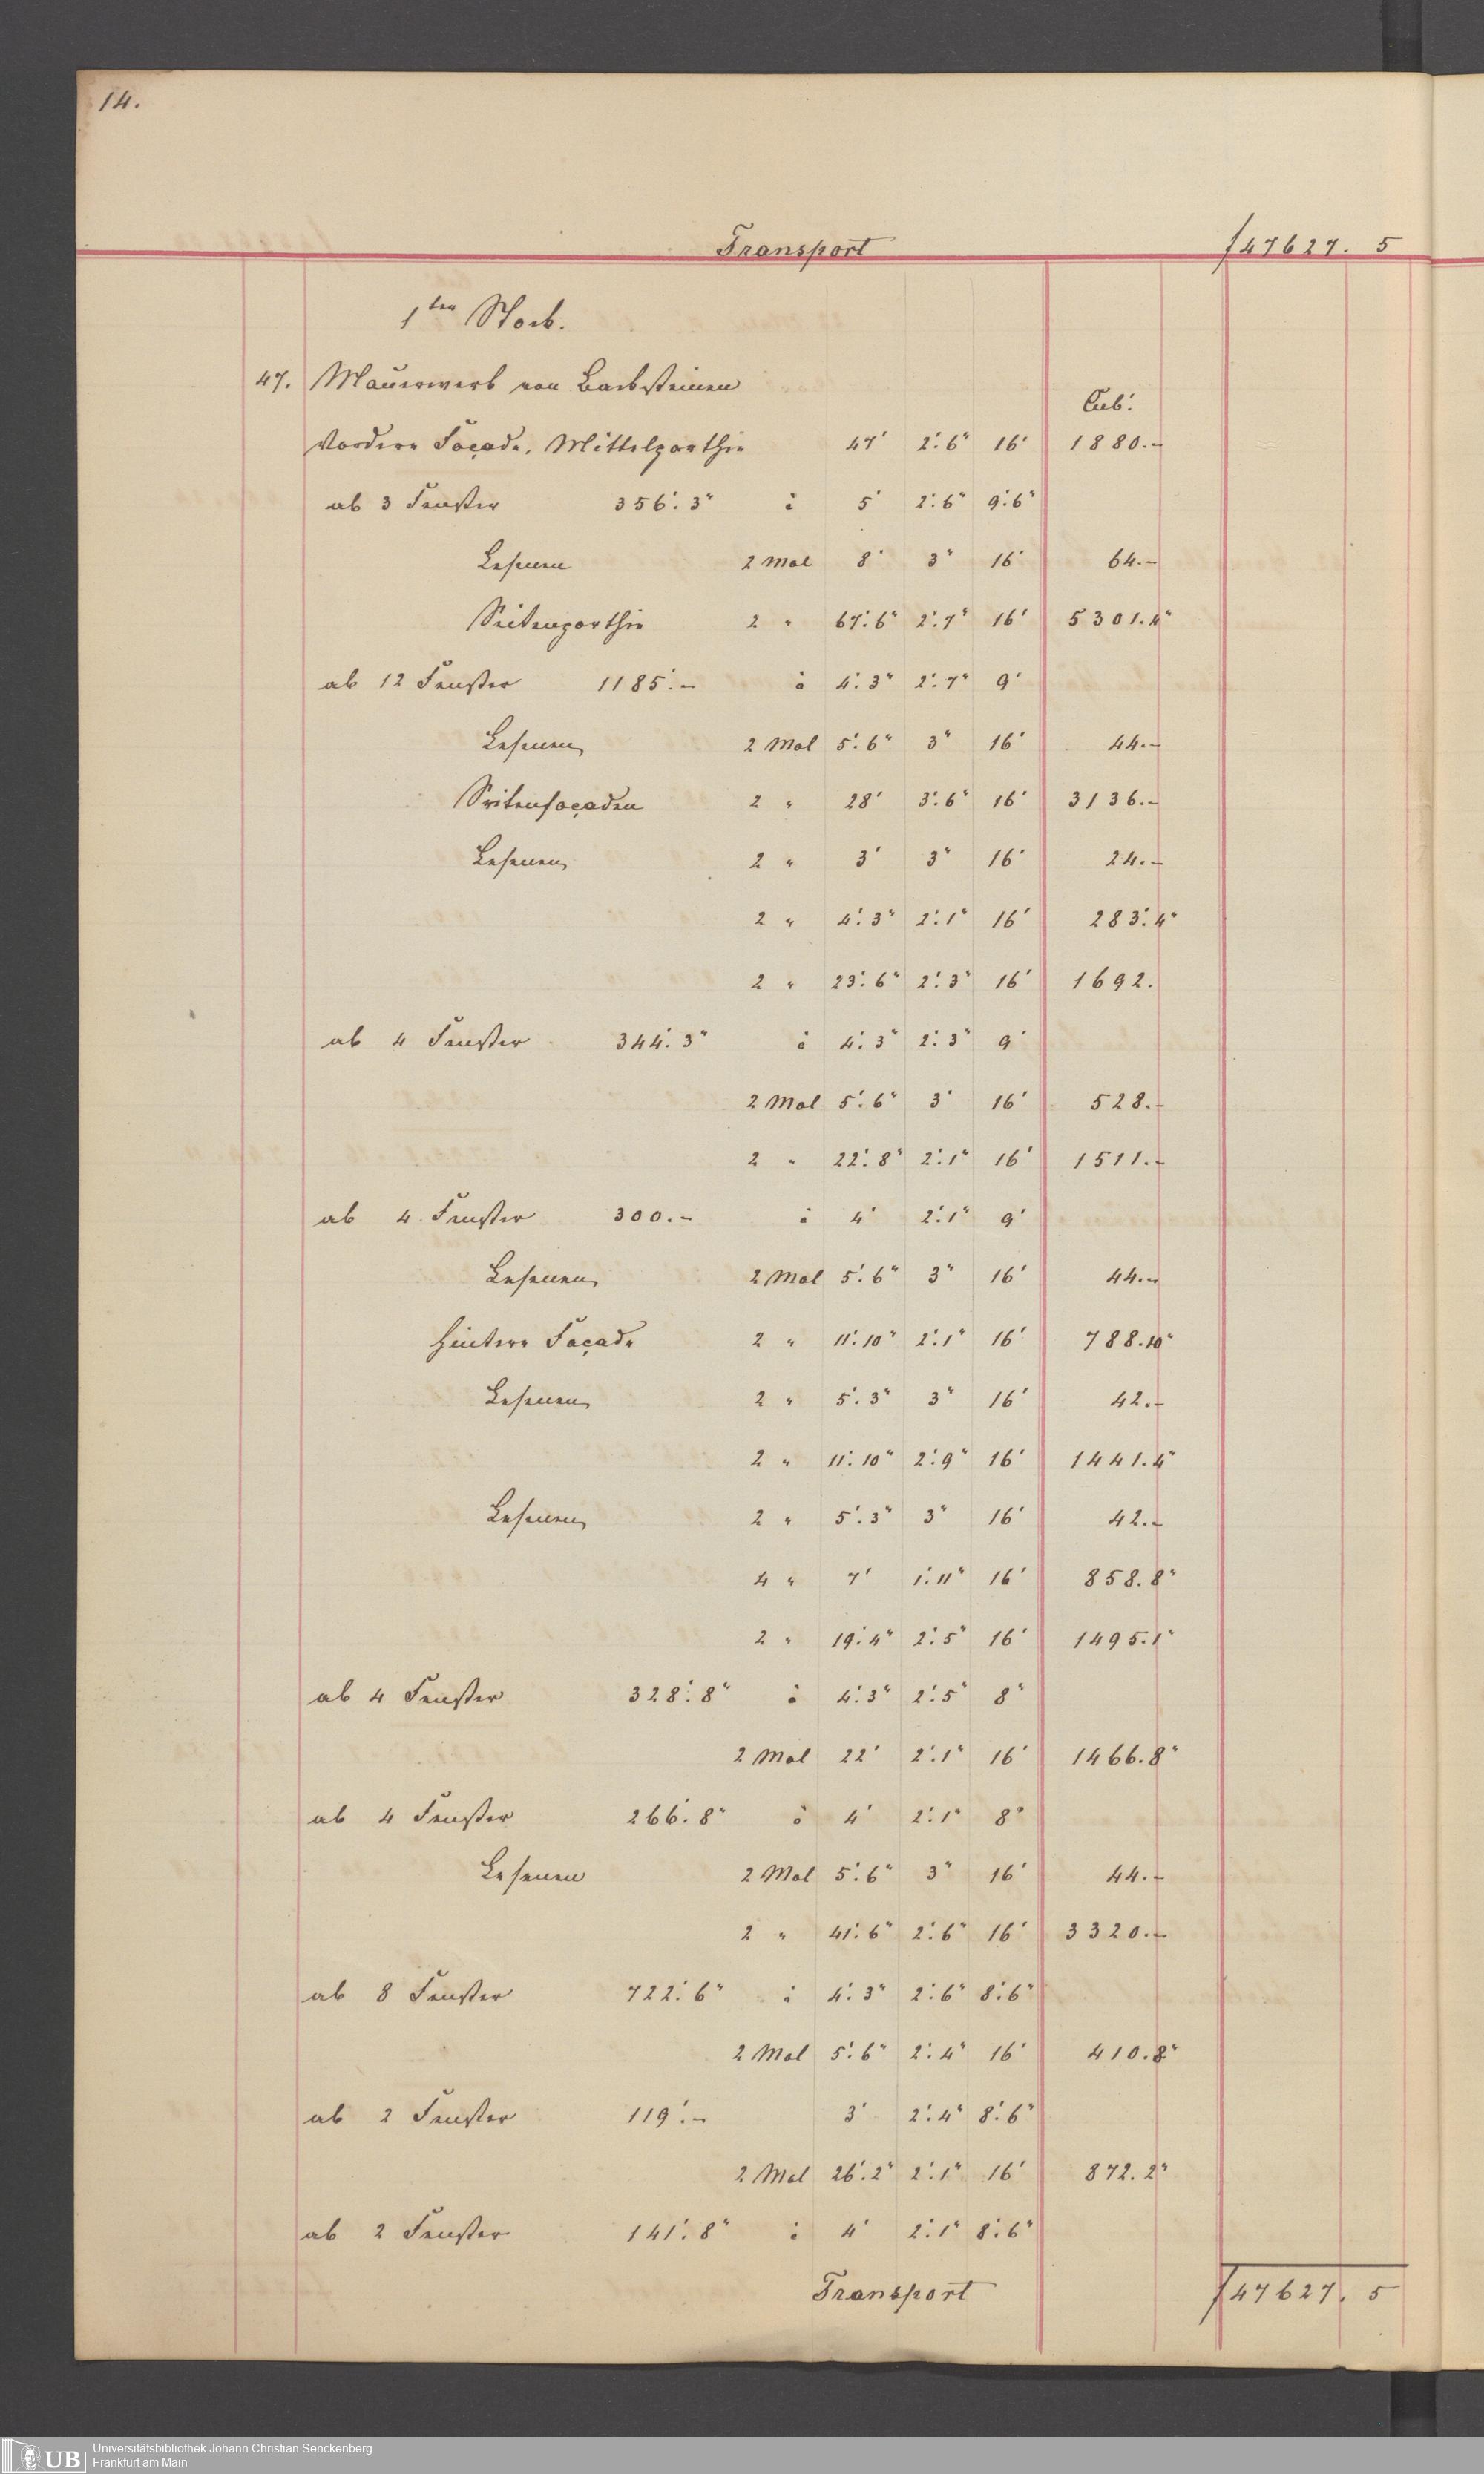 14.
Transport f 47627. 5
1ter Stock.
47. Mauerwerk von Backsteinen
Cub'.
Vordere Façade. Mittelparthie 47' 2'.6" 16' 1880.–
ab 3 Fenster 356'.3" à 5' 2'.6" 9'.6"
Lesenen 2 Mal 8' 3" 16' 64.–
Seitenparthie 2 " 67'.6" 2'.7" 16' 5301.4"
ab 12 Fenster 1185'.– à 4'.3" 2'.7" 9'
Lesenen 2 Mal 5'.6" 3" 16' 44.–
Seitenfaçaden 2 " 28' 3'.6" 16' 3136.–
Lesenen 2 " 3' 3" 16' 24.–
2 " 4'.3" 2'.1" 16' 283'.4"
2 " 23'.6" 2'.3" 16' 1692.
ab 4 Fenster 344'.3" à 4'.3" 2'.3" 9'
2 Mal 5'.6" 3' 16' 528.–
2 " 22'.8" 2'.1" 16' 1511.–
ab 4 Fenster 300.– à 4' 2'.1" 9'
Lesenen 2 Mal 5'.6" 3" 16' 44.–
Hintere Façade 2 " 11'.10" 2'.1" 16' 788.10"
Lesenen 2 " 5'.3" 3" 16' 42.–
2 " 11'.10" 2'.9" 16' 1441.4"
Lesenen 2 " 5'.3" 3" 16' 42.–
4 " 7' 1'.11" 16' 858.8"
2 " 19'.4" 2'.5" 16' 1495.1"
ab 4 Fenster 328'.8" à 4'.3" 2'.5" 8"
2 Mal 22' 2'.1" 16' 1466.8"
ab 4 Fenster 266'.8" à 4' 2'.1" 8"
Lesenen 2 Mal 5'.6" 3" 16' 44.–
2 " 41'.6" 2'.6" 16' 3320.–
ab 8 Fenster 722'.6" à 4'.3" 2'.6" 8'.6"
2 Mal 5'.6" 2'.4" 16' 410.8"
ab 2 Fenster 119'.– 3' 2'.4" 8'.6"
2 Mal 26'.2" 2'.1" 16' 872.2"
ab 2 Fenster 141'.8" à 4' 2'.1" 8'.6"
Transport f 47627. 5
UB Universitätsbibliothek Johann Christian Senckenberg
Frankfurt am Main